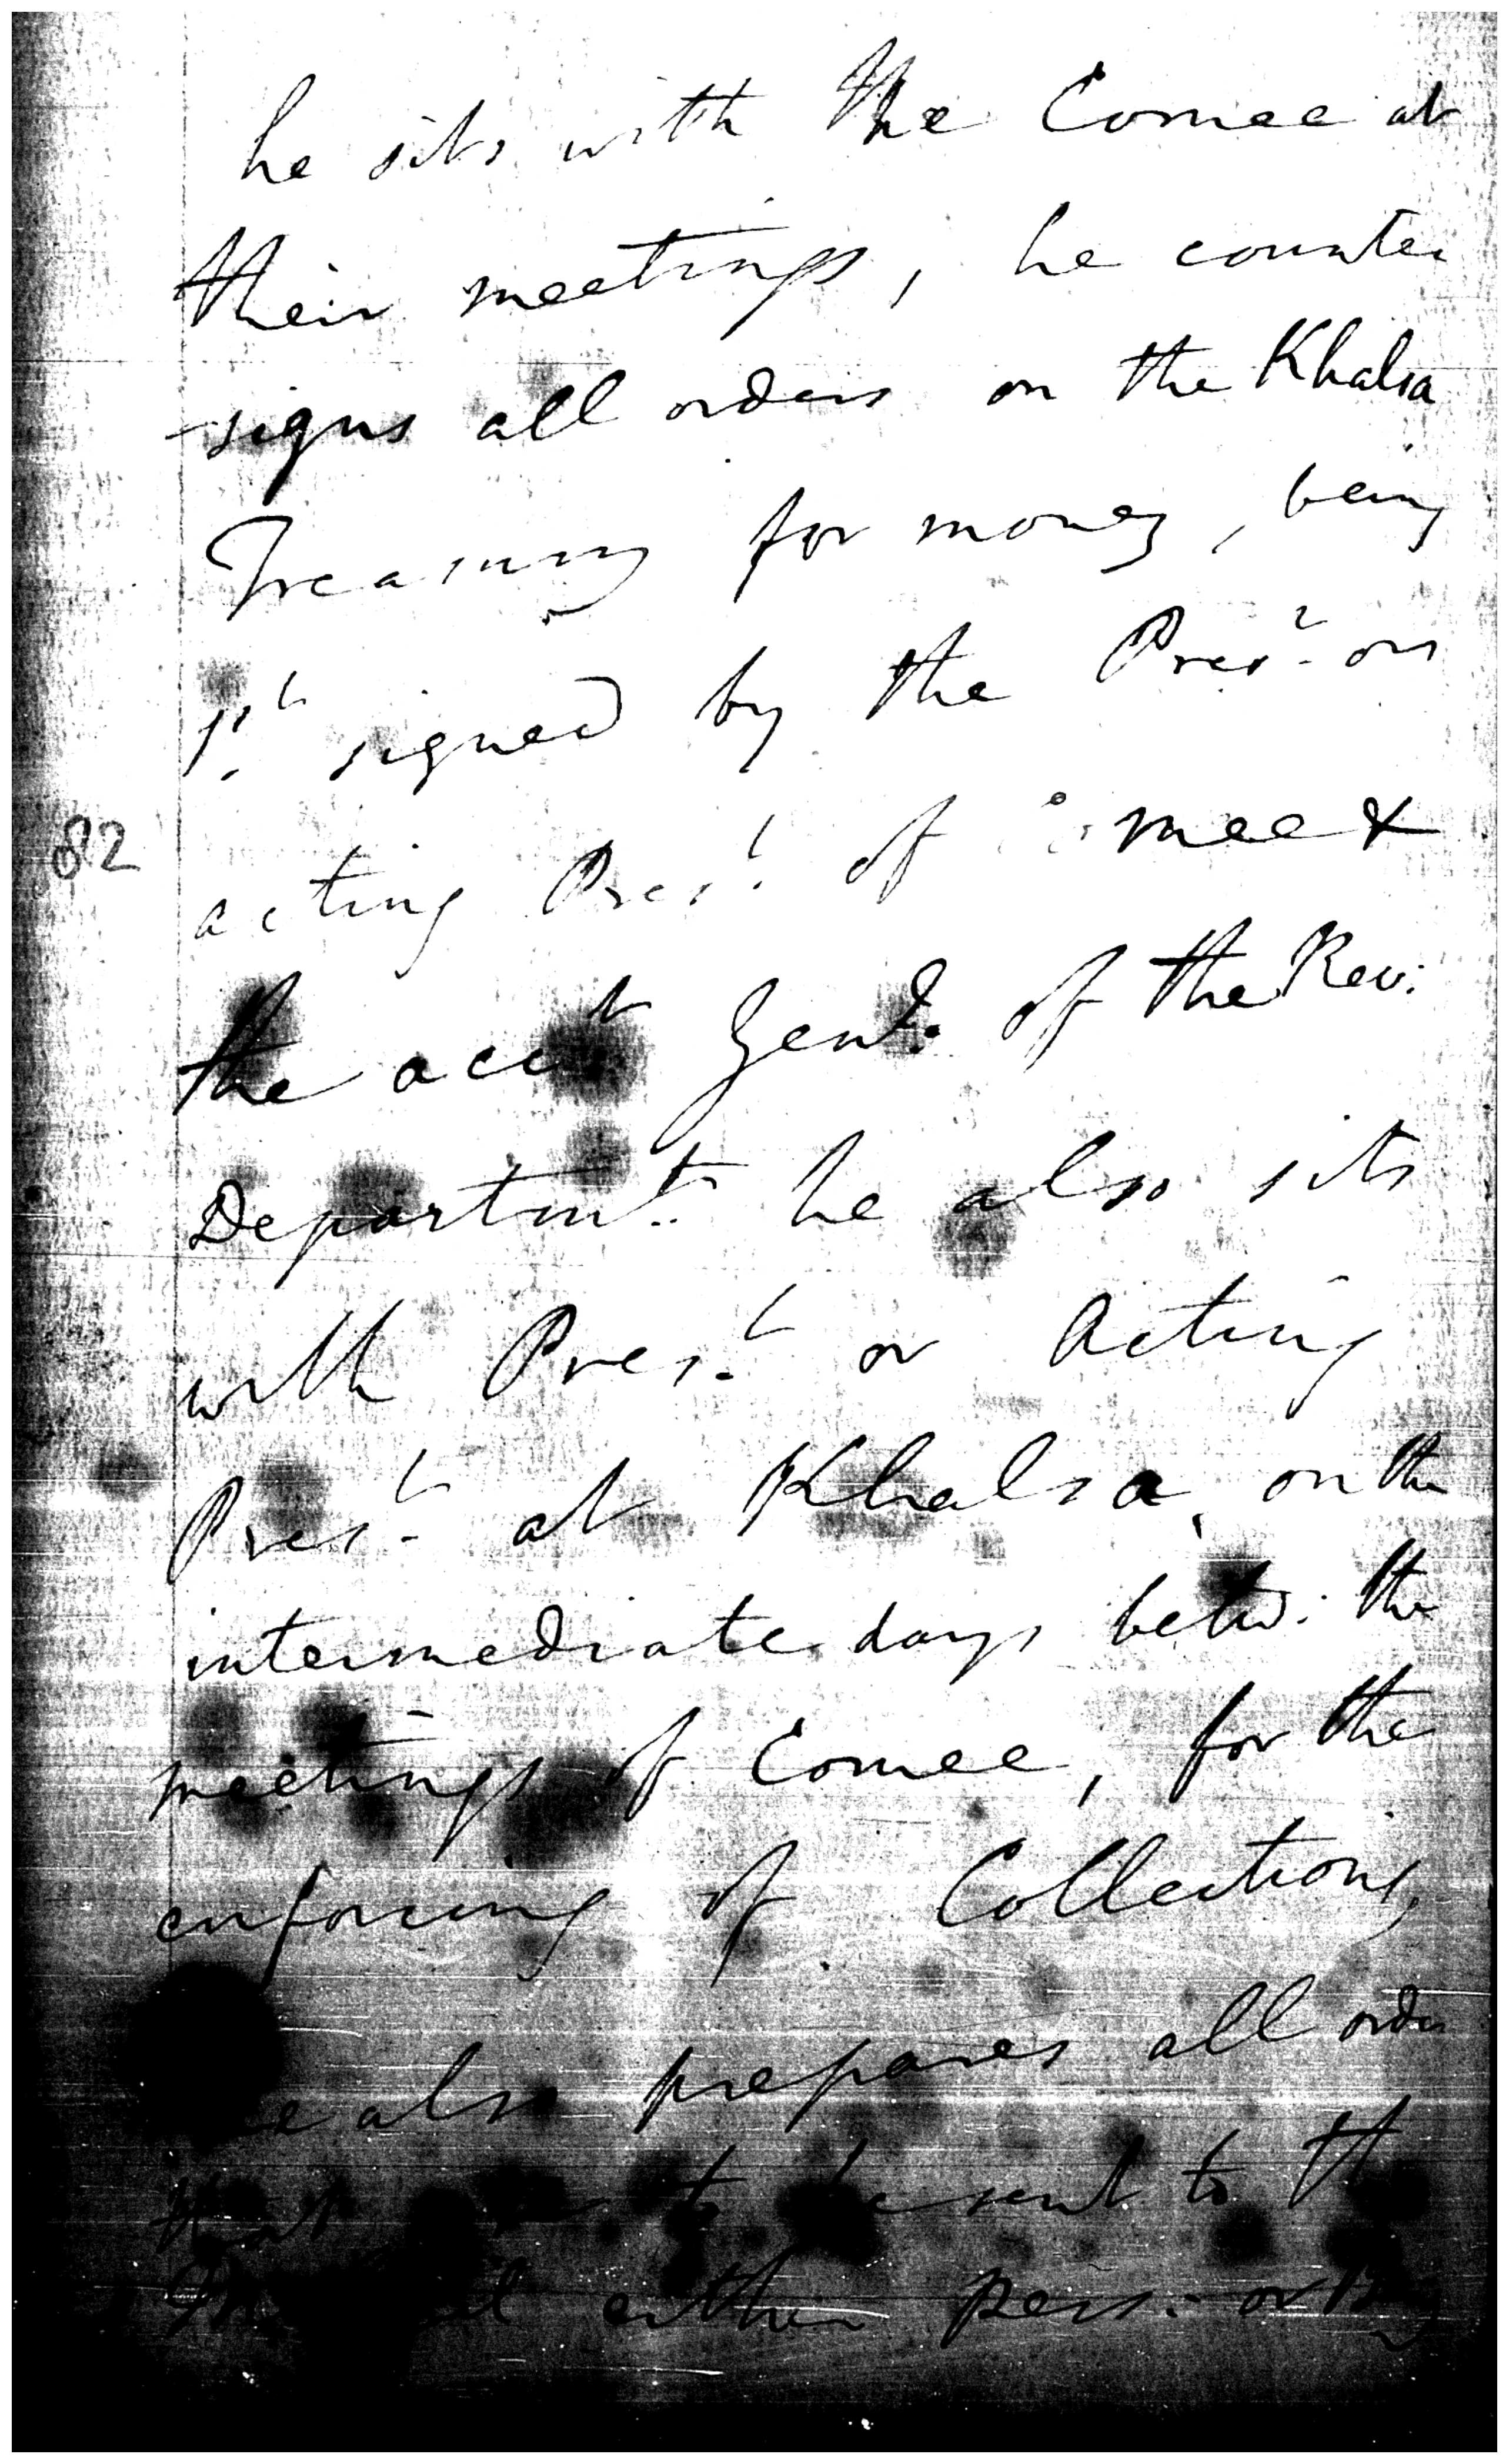 he sits with the Comee at
their meetings, he counter
-signs all orders on the Khalsa
Treasury for money, being
1st. signed by the Prest. or
82
acting Prest. of mee &
the acct Genl: of the Rev:
Departmt. he also sits
with Prest. or Acting
Prest. at Khalsa, on the
intermediate days betw: the
meetings of Comee, for the
enforcing of Collections,
also prepares all orders
that to be sent to the
either Pers: or Beng